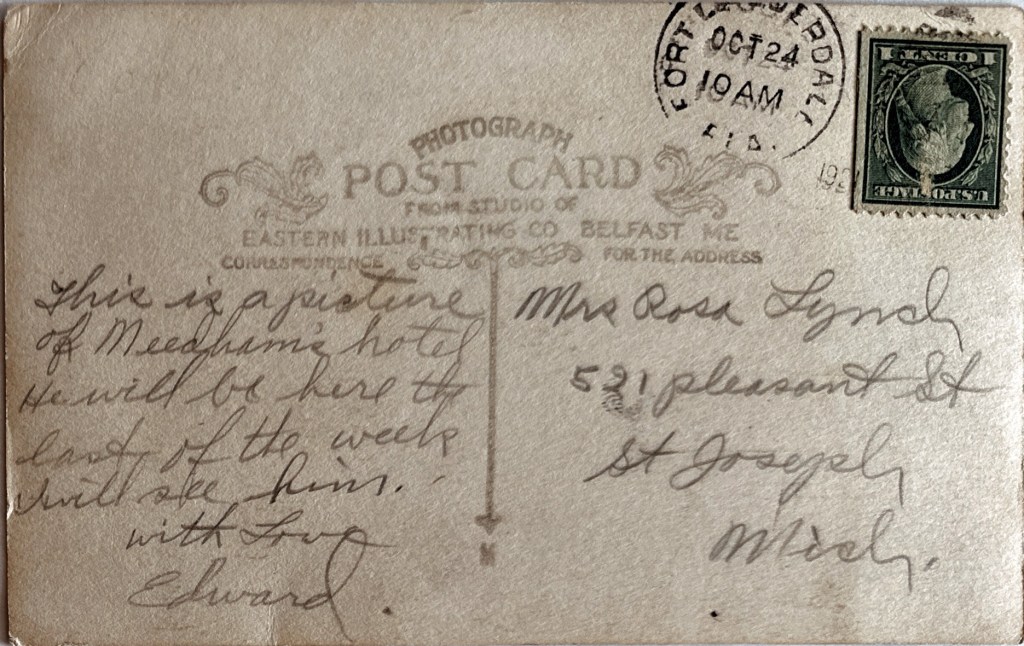 FORT LAUDERDALE
OCT 24
10 AM
FLA.
1 CENT 1
U.S. POSTAGE
PHOTOGRAPH
POST CARD
FROM STUDIO OF
EASTERN ILLUSTRATING CO BELFAST ME
CORRESPONDENCE
FOR THE ADDRESS
This is a picture
of Needham's hotel
He will be here th
last of the week
I will see him.
with Love
Edward.
Mrs Rosa Lynch
521 pleasant St
St Joseph
Mich.